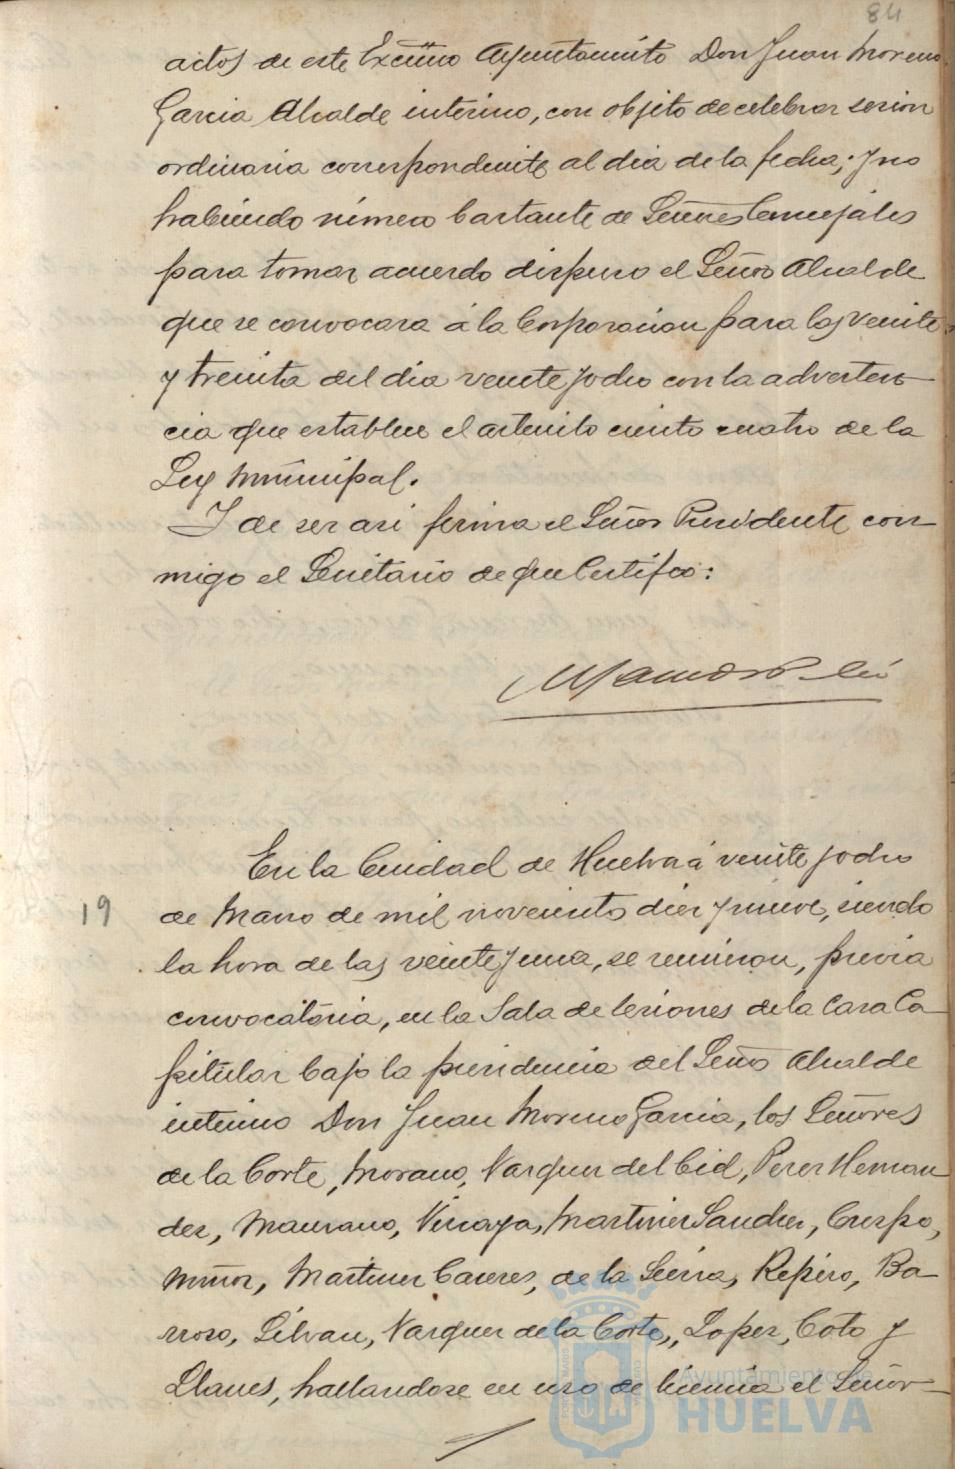 84
actos de este Excmo Ayuntamiento Don Juan Moreno
Garcia Alcalde interino, con objeto de celebrar sesion
ordinaria correspondiente al dia de la fecha; y no
habiendo número bastante de Señores Concejales
para tomar acuerdo dispuso el Señor Alcalde
que se convocara á la Corporacion para las veinte
y treinta del dia veinte y ocho con la adverten-
cia que establece el articulo ciento cuatro de la
Ley Municipal.
Y de ser asi firma el Señor Presidente con-
migo el Secretario de que Certifico:
En la Ciudad de Huelva á veinte y ocho
19
de Marzo de mil novecientos diez y nueve, siendo
la hora de las veinte y una, se reunieron, previa
convocatoria, en la Sala de Sesiones de la Casa Ca-
pitular bajo la presidencia del Señor Alcalde
interino Don Juan Moreno Garcia, los Señores
de la Corte, Morano, Vazquez del Cid, Perez Hernan
dez, Manzano, Vizcaya, Martinez Sanchez, Crespo,
Muñoz, Martinez Caceres, de la Sierra, Repiso, Ba-
rroso, Silvan, Vazquez de la Corte, Lopez, Coto y
Llanes, hallandose en uso de licencia el Señor
Ayuntamiento de
HUELVA